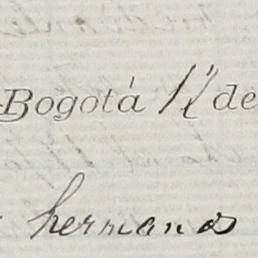 Bogotá 12 de
hermanos